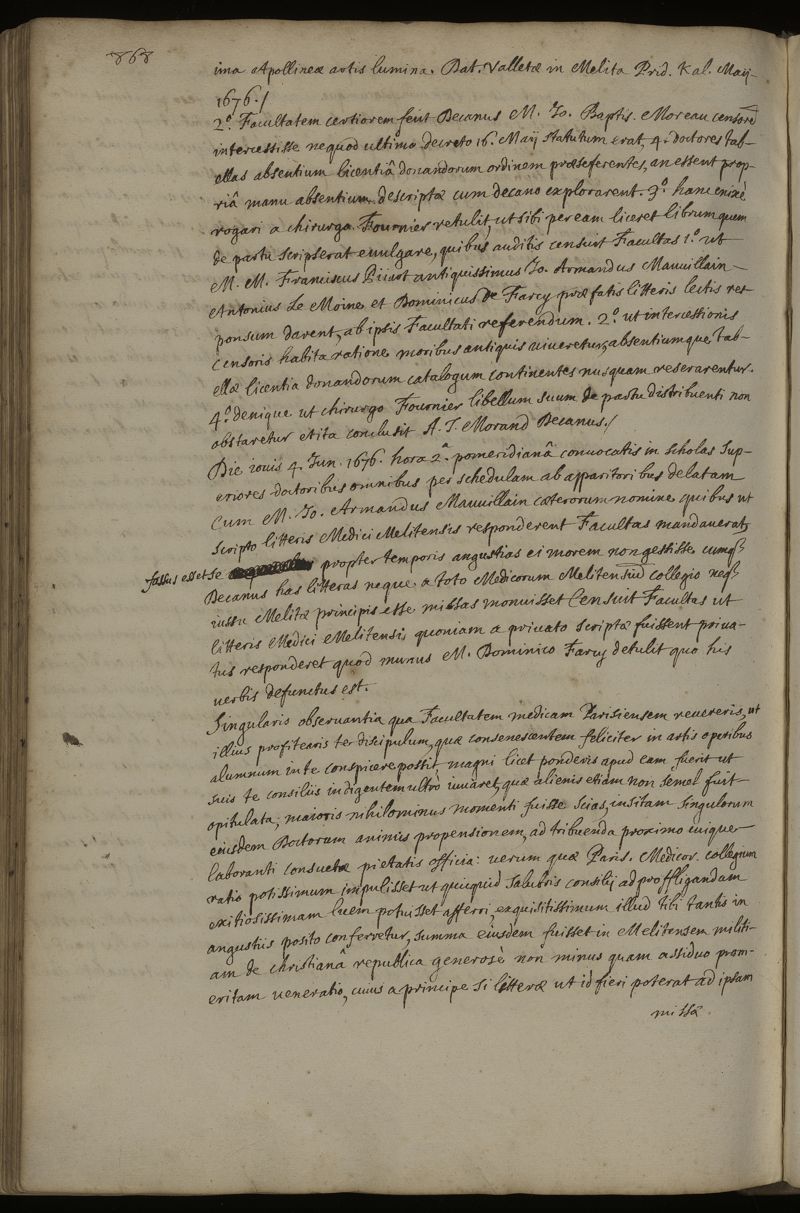 868
ima Apollineæ artis lumina. Dat. Valletæ in Melita Prid. Kal. Maij
1676./
2.º Facultatem certiorem fecit Decanus M. Jo. Baptis. Moreau censorē
intercessisse nequod ultimo decreto 16. Maij statutum erat, 4. doctores tab-
ellas absentium licentiâ donandorum ordinem præseferentes, an essent prop-
riâ manu absentium descriptæ cum decano explorarent. 3.º hanc enixè
rogari a chirurgo Fournier retulit, ut sibi per eam liceret librum quem
de partu scripserat evulgare, quibus auditis censuit Facultas 1.º ut
M. M. Franciscus Piiart antiquissimus Jo. Armandus Mauuillain
Antonius Le Moine et Dominicus De Farcy præfatis litteris lectis res-
ponsum darent, ab ipsis Facultati referendum. 2.º ut intercessionis
censoris habita ratione moribus antiquis uiueretur, absentiumque tab-
ellæ licentia donandorum catalogum continentes nusquam reserarentur.
4.º denique ut chirurgo Fournier libellum suum de partu distribuenti non
obstaretur et ita conclusit A. J. Morand Decanus./
Die iouis 4. Jun. 1676. hora 2.ª pomeridianâ conuocatis in scholas sup-
eriores doctoribus omnibus per schedulam ab apparitoribus delatam
Cum M. Jo. Armandus Mauuillain cæterorum nomine quibus ut
scripto litteris Medici Melitensis responderent Facultas mandauerat,
fassus esset se propter temporis angustias ei morem non gestisse cumq3
Decanus has litteras neque a toto Medicorum Melitensiū collegio neq3
iussu Melitæ principis esse missas monuisset Censuit Facultas ut
litteris Medici Melitensis quoniam a priuato scriptæ fuissent priua-
tus responderet quod munus M. Dominico Farcy detulit quo his
uerbis defunctus est.
Singularis obseruantia qua Facultatem medicam Parisiensem reuereris, ut
illius profitearis te discipulum, quæ consenescentem feliciter in artis operibus
alumnum in te conspicere possit, magni licet ponderis apud eam fuerit ut
suis te consiliis indigentem ultrò iuuaret, quæ alienis etiam non semel fuit
opitulata; maioris nihilominus momenti fuisse scias, insitam singulorum
eiusdem Doctorum animis propensionem, ad tribuenda proximo cuique
laboranti consuetæ pietatis officia: uerum quæ Paris. Medicor. collegium
ratio potissimum impulisset ut quicquid salubris consilij ad proffligandam
exitiosissimam luem potuisset afferri, exquisitissimum illud tibi tantis in
angustiis posito conferretur, summa eiusdem fuisset in Melitensem militi-
am de christianâ republica generosè non minus quam assiduo prom-
eritam ueneratio, cuius a principe si litteræ ut id fieri poterat ad ipsam
missæ